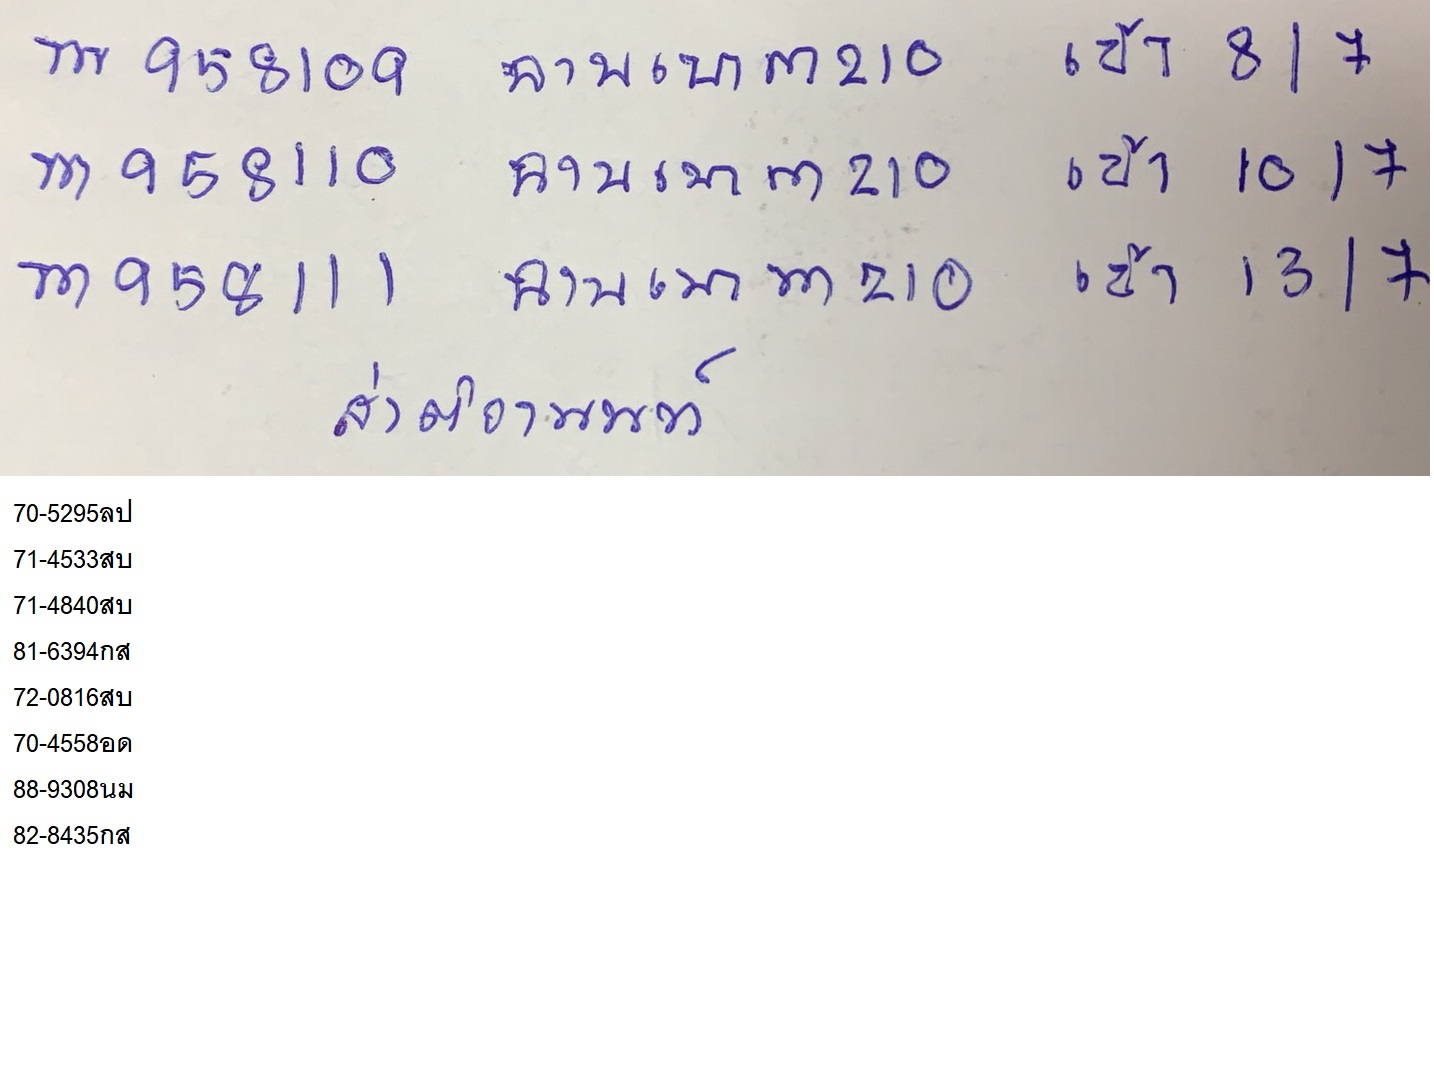 958109 ลานเบา 210 เข้า 8/7
958110 ลานเบา 210 เข้า 10/7
958111 ลานเบา 210 เข้า 13/7
70-5295ลป
71-4533สบ
71-4840สบ
81-6394กส
72-0816สบ
70-4558อด
88-9308นม
82-8435กส